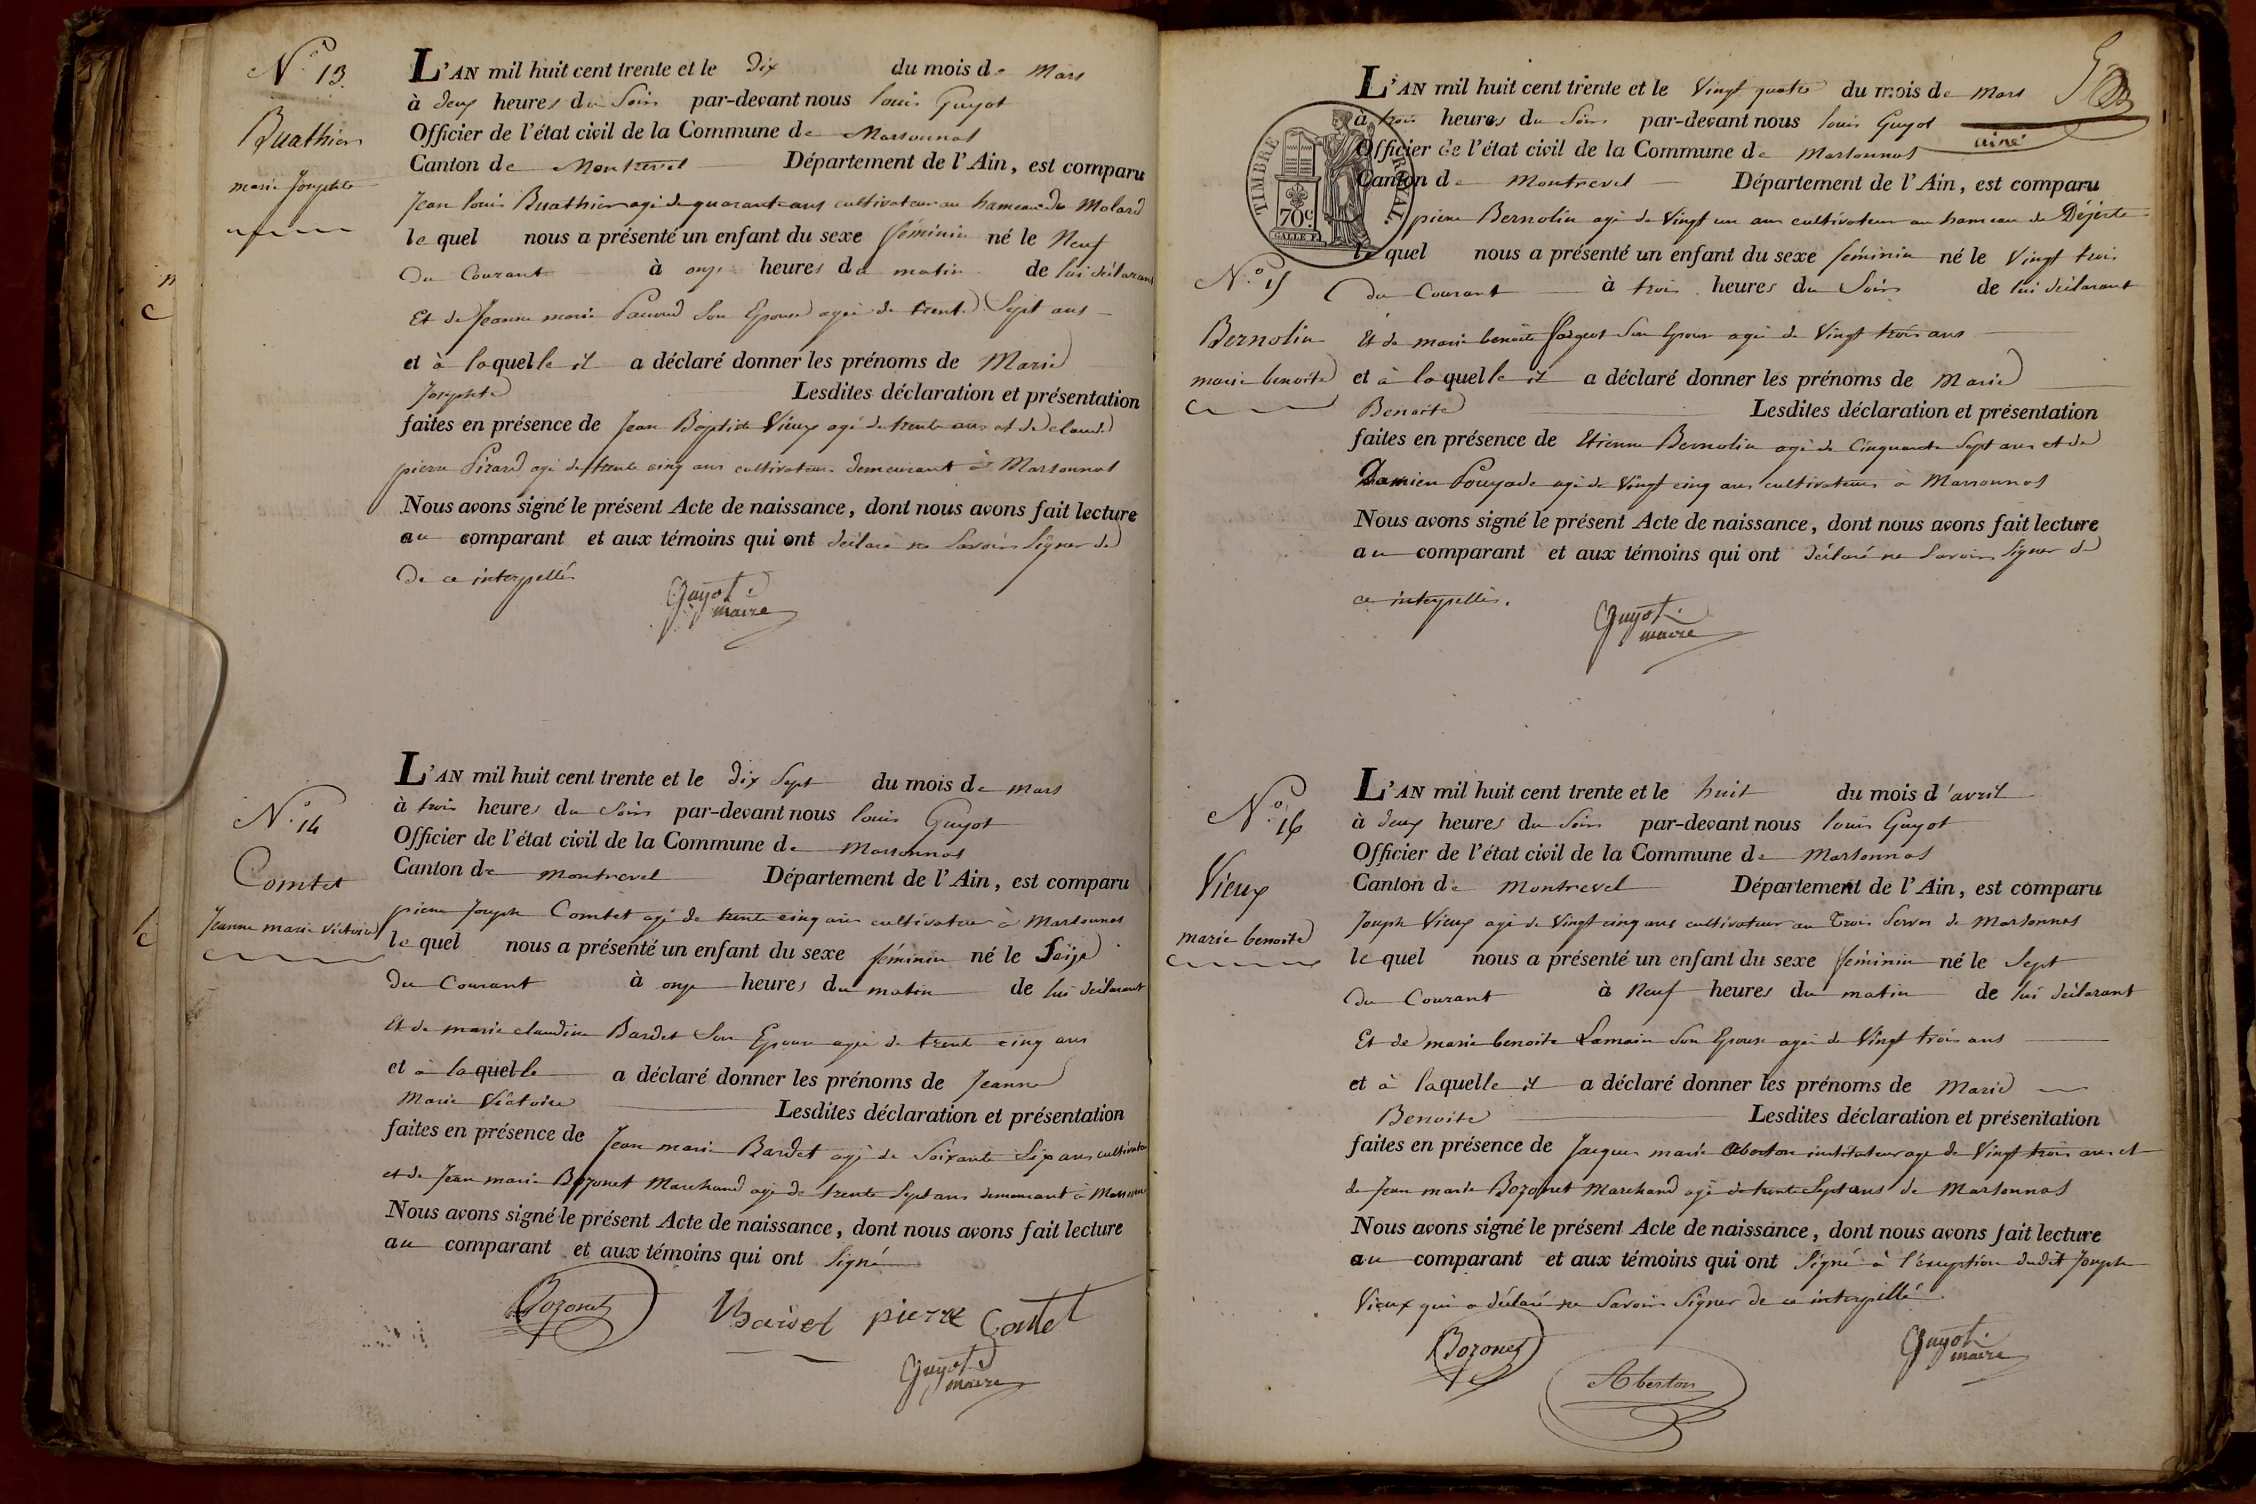 N.° 13.
Buathier
marie Josephte
L'AN mil huit cent trente et le dix du mois de Mars
à deux heures du Soir par-devant nous louis Guyot
Officier de l'état civil de la Commune de Marsonnas
Canton de Montrevel Département de l'Ain, est comparu
Jean louis Buathier agé de quarante ans cultivateur au hameau du Molard
le quel nous a présenté un enfant du sexe féminin né le Neuf
du Courant à onze heures du matin de lui déclarant
Et de Jeanne marie son Epouse agée de trente Sept ans
et à laquelle il a déclaré donner les prénoms de Marie
Josephte Lesdites déclaration et présentation
faites en présence de Jean Baptiste Vieux agé de trente ans et de claude
pierre Pirard agé de trente cinq ans cultivateurs demeurant à Marsonnas
Nous avons signé le présent Acte de naissance, dont nous avons fait lecture
au comparant et aux témoins qui ont déclaré ne Savoir Signer de
de ce interpellés
Guyot
maire
N.° 14
Comtet
Jeanne marie victoire
L'AN mil huit cent trente et le dix Sept du mois de mars
à trois heures du Soir par-devant nous louis Guyot
Officier de l'état civil de la Commune de Marsonnas
Canton de montrevel Département de l'Ain, est comparu
pierre Joseph Comtet agé de trente cinq ans cultivateur à Marsonnas
le quel nous a présenté un enfant du sexe féminin né le Seize
du Courant à onze heures du matin de lui déclarant
Et de marie claudine Bardet Son Epouse agée de trente cinq ans
et à laquelle a déclaré donner les prénoms de Jeanne
Marie Victoire Lesdites déclaration et présentation
faites en présence de Jean marie Bardet agé de Soixante Six ans cultivateur
et de Jean marie Bozonet Marchand agé de trente Sept ans demeurant à Marsonnas
Nous avons signé le présent Acte de naissance, dont nous avons fait lecture
au comparant et aux témoins qui ont Signé
Bozonet pierre
Guyot
maire
N.° 15
Bernolin
marie benoite
TIMBRE ROYAL.
70 c.
L'AN mil huit cent trente et le Vingt quatre du mois de Mars
à trois heures du Soir par-devant nous louis Guyot
Officier de l'état civil de la Commune de Marsonnas
Canton de Montrevel Département de l'Ain, est comparu
pierre Bernolin agé de Vingt un ans cultivateur au hameau de
le quel nous a présenté un enfant du sexe féminin né le Vingt trois
du Courant à trois heures du Soir de lui déclarant
Et de marie benoite Son Epouse agée de Vingt trois ans
et à laquelle il a déclaré donner les prénoms de Marie
Benoite Lesdites déclaration et présentation
faites en présence de Etienne Bernolin agé de Cinquante Sept ans et de
Damien Pouyade agé de Vingt cinq ans cultivateurs à Marsonnas
Nous avons signé le présent Acte de naissance, dont nous avons fait lecture
au comparant et aux témoins qui ont déclaré ne Savoir Signer de
ce interpellés.
Guyot
maire
N.° 16
Vieux
marie benoite
L'AN mil huit cent trente et le huit du mois d'avril
à deux heures du Soir par-devant nous louis Guyot
Officier de l'état civil de la Commune de Marsonnas
Canton de Montrevel Département de l'Ain, est comparu
Joseph Vieux agé de Vingt cinq ans cultivateur au Trois de Marsonnas
le quel nous a présenté un enfant du sexe féminin né le Sept
du Courant à Neuf heures du matin de lui déclarant
Et de marie benoite Lamain Son Epouse agée de Vingt trois ans
et à laquelle il a déclaré donner les prénoms de Marie
Benoite Lesdites déclaration et présentation
faites en présence de Jacques marie Aberton instituteur age de Vingt trois ans et
de Jean marie Bozonet Marchand agé de trente Sept ans de Marsonnas
Nous avons signé le présent Acte de naissance, dont nous avons fait lecture
au comparant et aux témoins qui ont Signé à l'éxception dudit Joseph
Vieux qui a déclaré ne Savoir Signer de ce interpellé.
Bozonet
Aberton
Guyot
maire